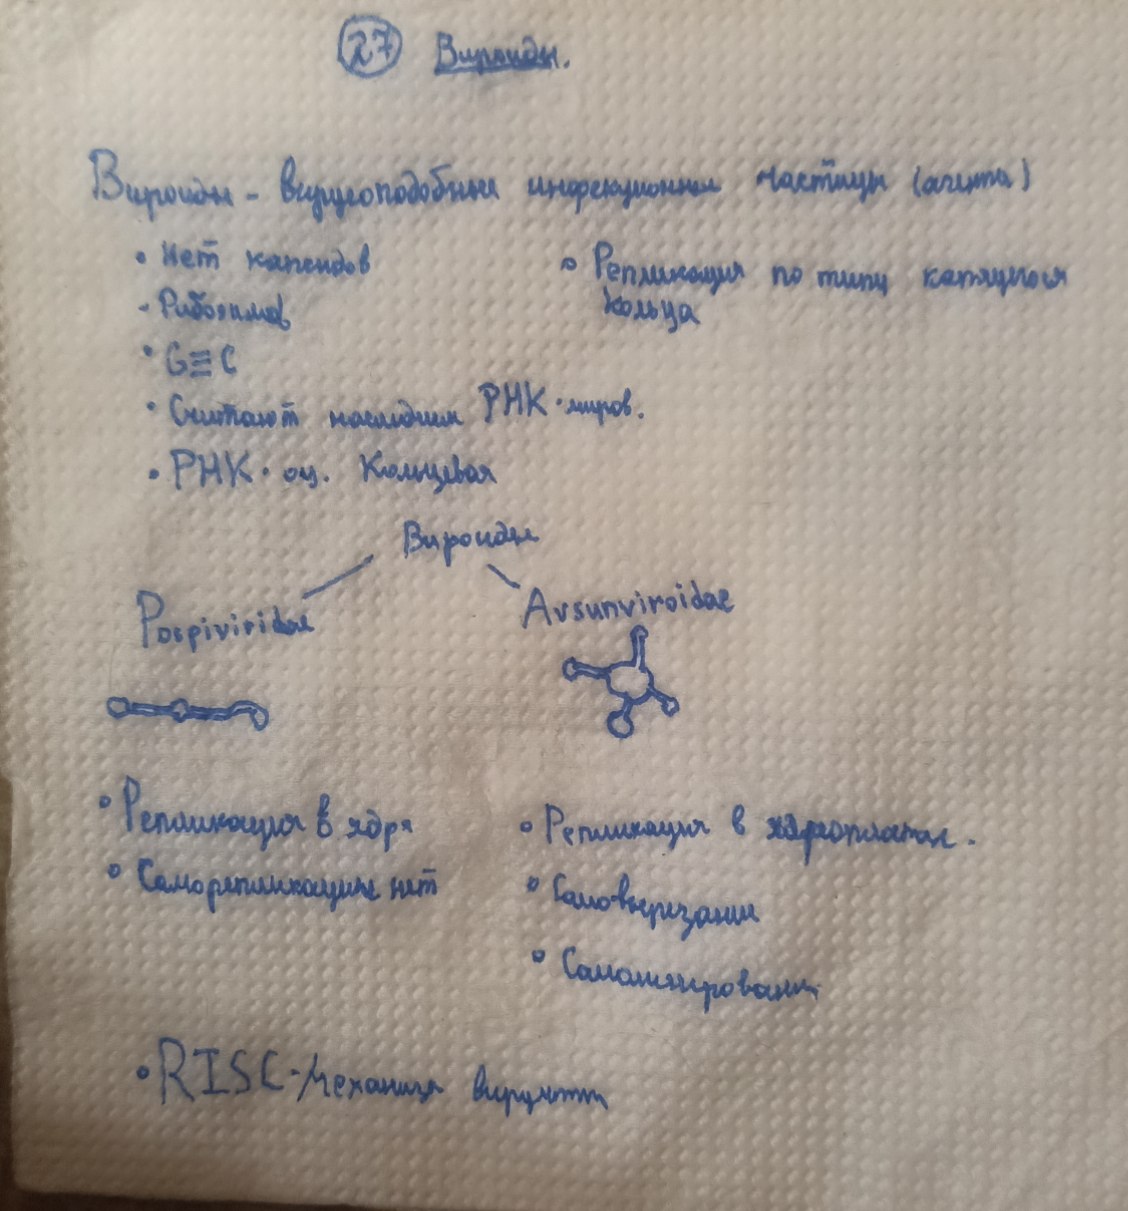 27 Вироиды.
Вироиды - вирусоподобные инфекционные частицы (агенты)
• Нет капсидов
- Рибозимов
• G≡C
• Считают наследием РНК-миров.
• РНК-оц. Кольцевая
• Репликация по типу катящегося
кольца
Вироиды
Pospiviridae
Avsunviroidae
• Репликация в ядре
• Саморепликации нет
• Репликация в хлоропластах.
• Самовырезание
• Самолигирование
• RISC-механизм вирулентн